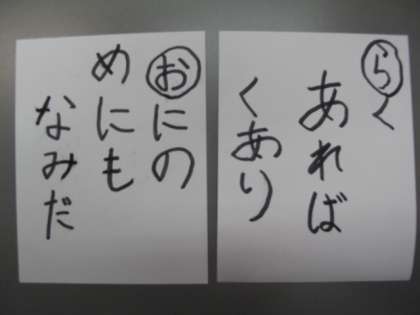 らく
あれば
くあり
おにの
めにも
なみだ